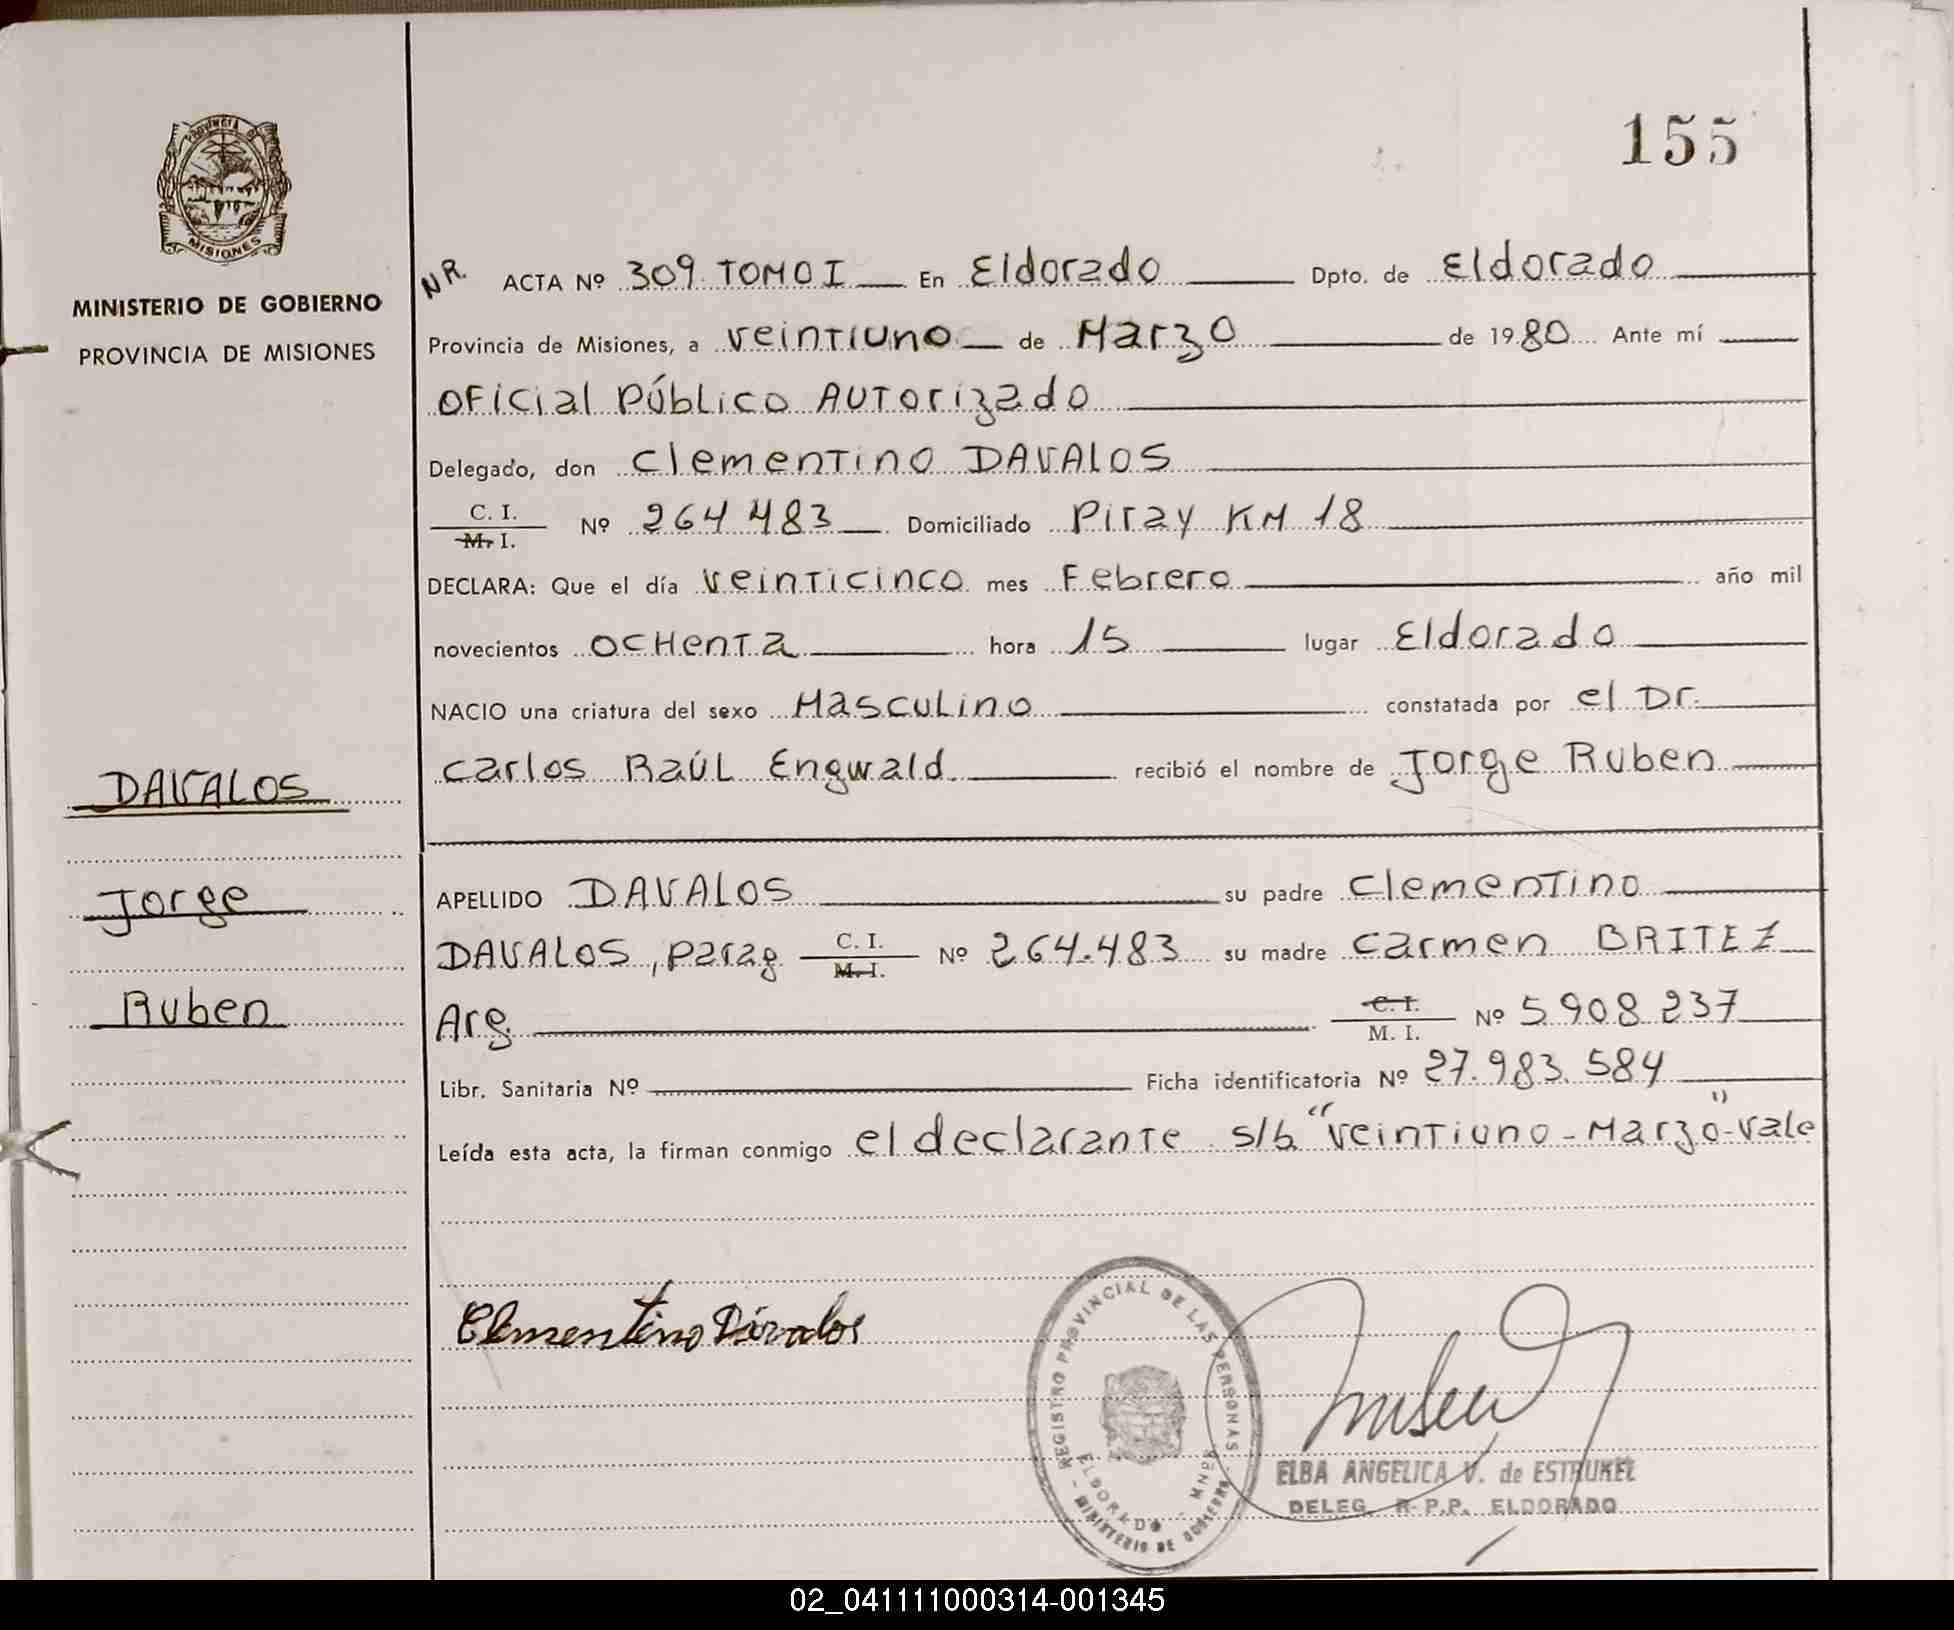 155
PROVINCIA DE
MISIONES
MINISTERIO DE GOBIERNO
PROVINCIA DE MISIONES
DAVALOS
Jorge
Ruben
NR. ACTA Nº 309 TOMO I En Eldorado Dpto. de Eldorado
Provincia de Misiones, a veintiuno de Marzo de 1980 Ante mí
Oficial Público Autorizado
Delegado, don Clementino DAVALOS
C. I.
M. I. Nº 264 483 Domiciliado Piray KM 18
DECLARA: Que el día veinticinco mes Febrero año mil
novecientos ochenta hora 15 lugar Eldorado
NACIO una criatura del sexo Masculino constatada por el Dr.
Carlos Raúl Engwald recibió el nombre de Jorge Ruben
APELLIDO DAVALOS su padre Clementino
DAVALOS, parag. C. I. M. I. Nº 264.483 su madre Carmen BRITEZ
Arg. C. I. M. I. Nº 5 908 237
Libr. Sanitaria Nº Ficha identificatoria Nº 27.983.584
Leída esta acta, la firman conmigo el declarante s/b "veintiuno - Marzo"-vale
Clementino Dávalos
REGISTRO PROVINCIAL DE LAS PERSONAS
ELDORADO - MNES
- MINISTERIO DE GOBIERNO -
ELBA ANGELICA V. de ESTRUKEL
DELEG. R. P.P. ELDORADO
02_041111000314-001345